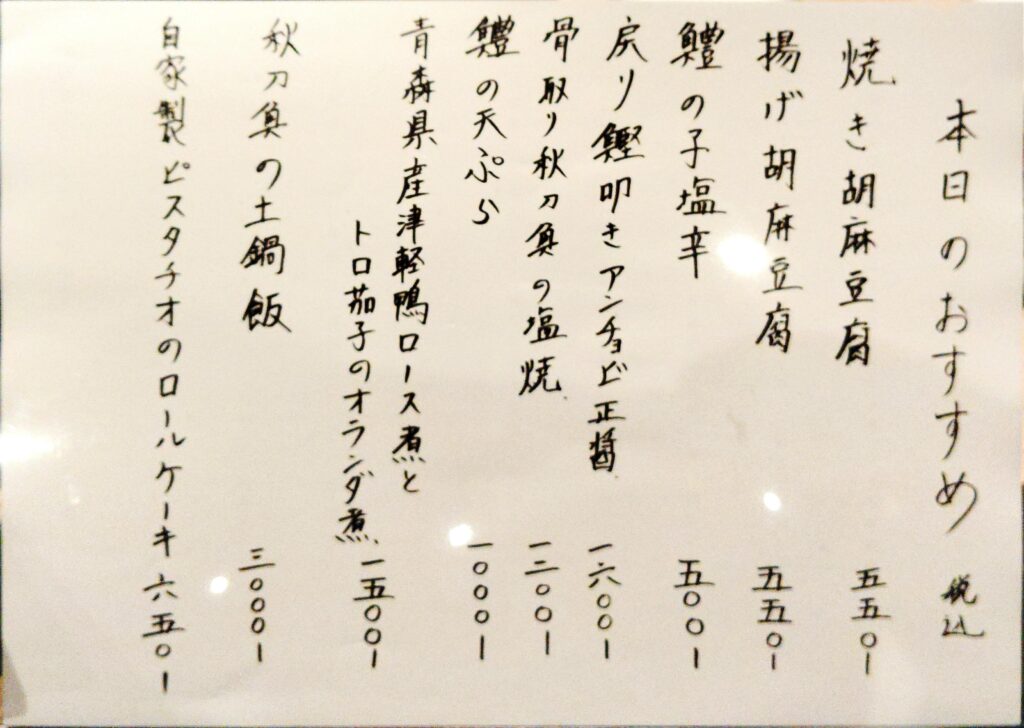 本日のおすすめ 税込
焼き胡麻豆腐 五五〇-
揚げ胡麻豆腐 五五〇-
鱧の子塩辛 五〇〇-
戻り鰹叩きアンチョビ正醤 一六〇〇-
骨取り秋刀魚の塩焼 一二〇〇-
鱧の天ぷら 一〇〇〇-
青森県産津軽鴨ロース煮と
トロ茄子のオランダ煮 一五〇〇-
秋刀魚の土鍋飯 三〇〇〇-
自家製ピスタチオのロールケーキ 六五〇-